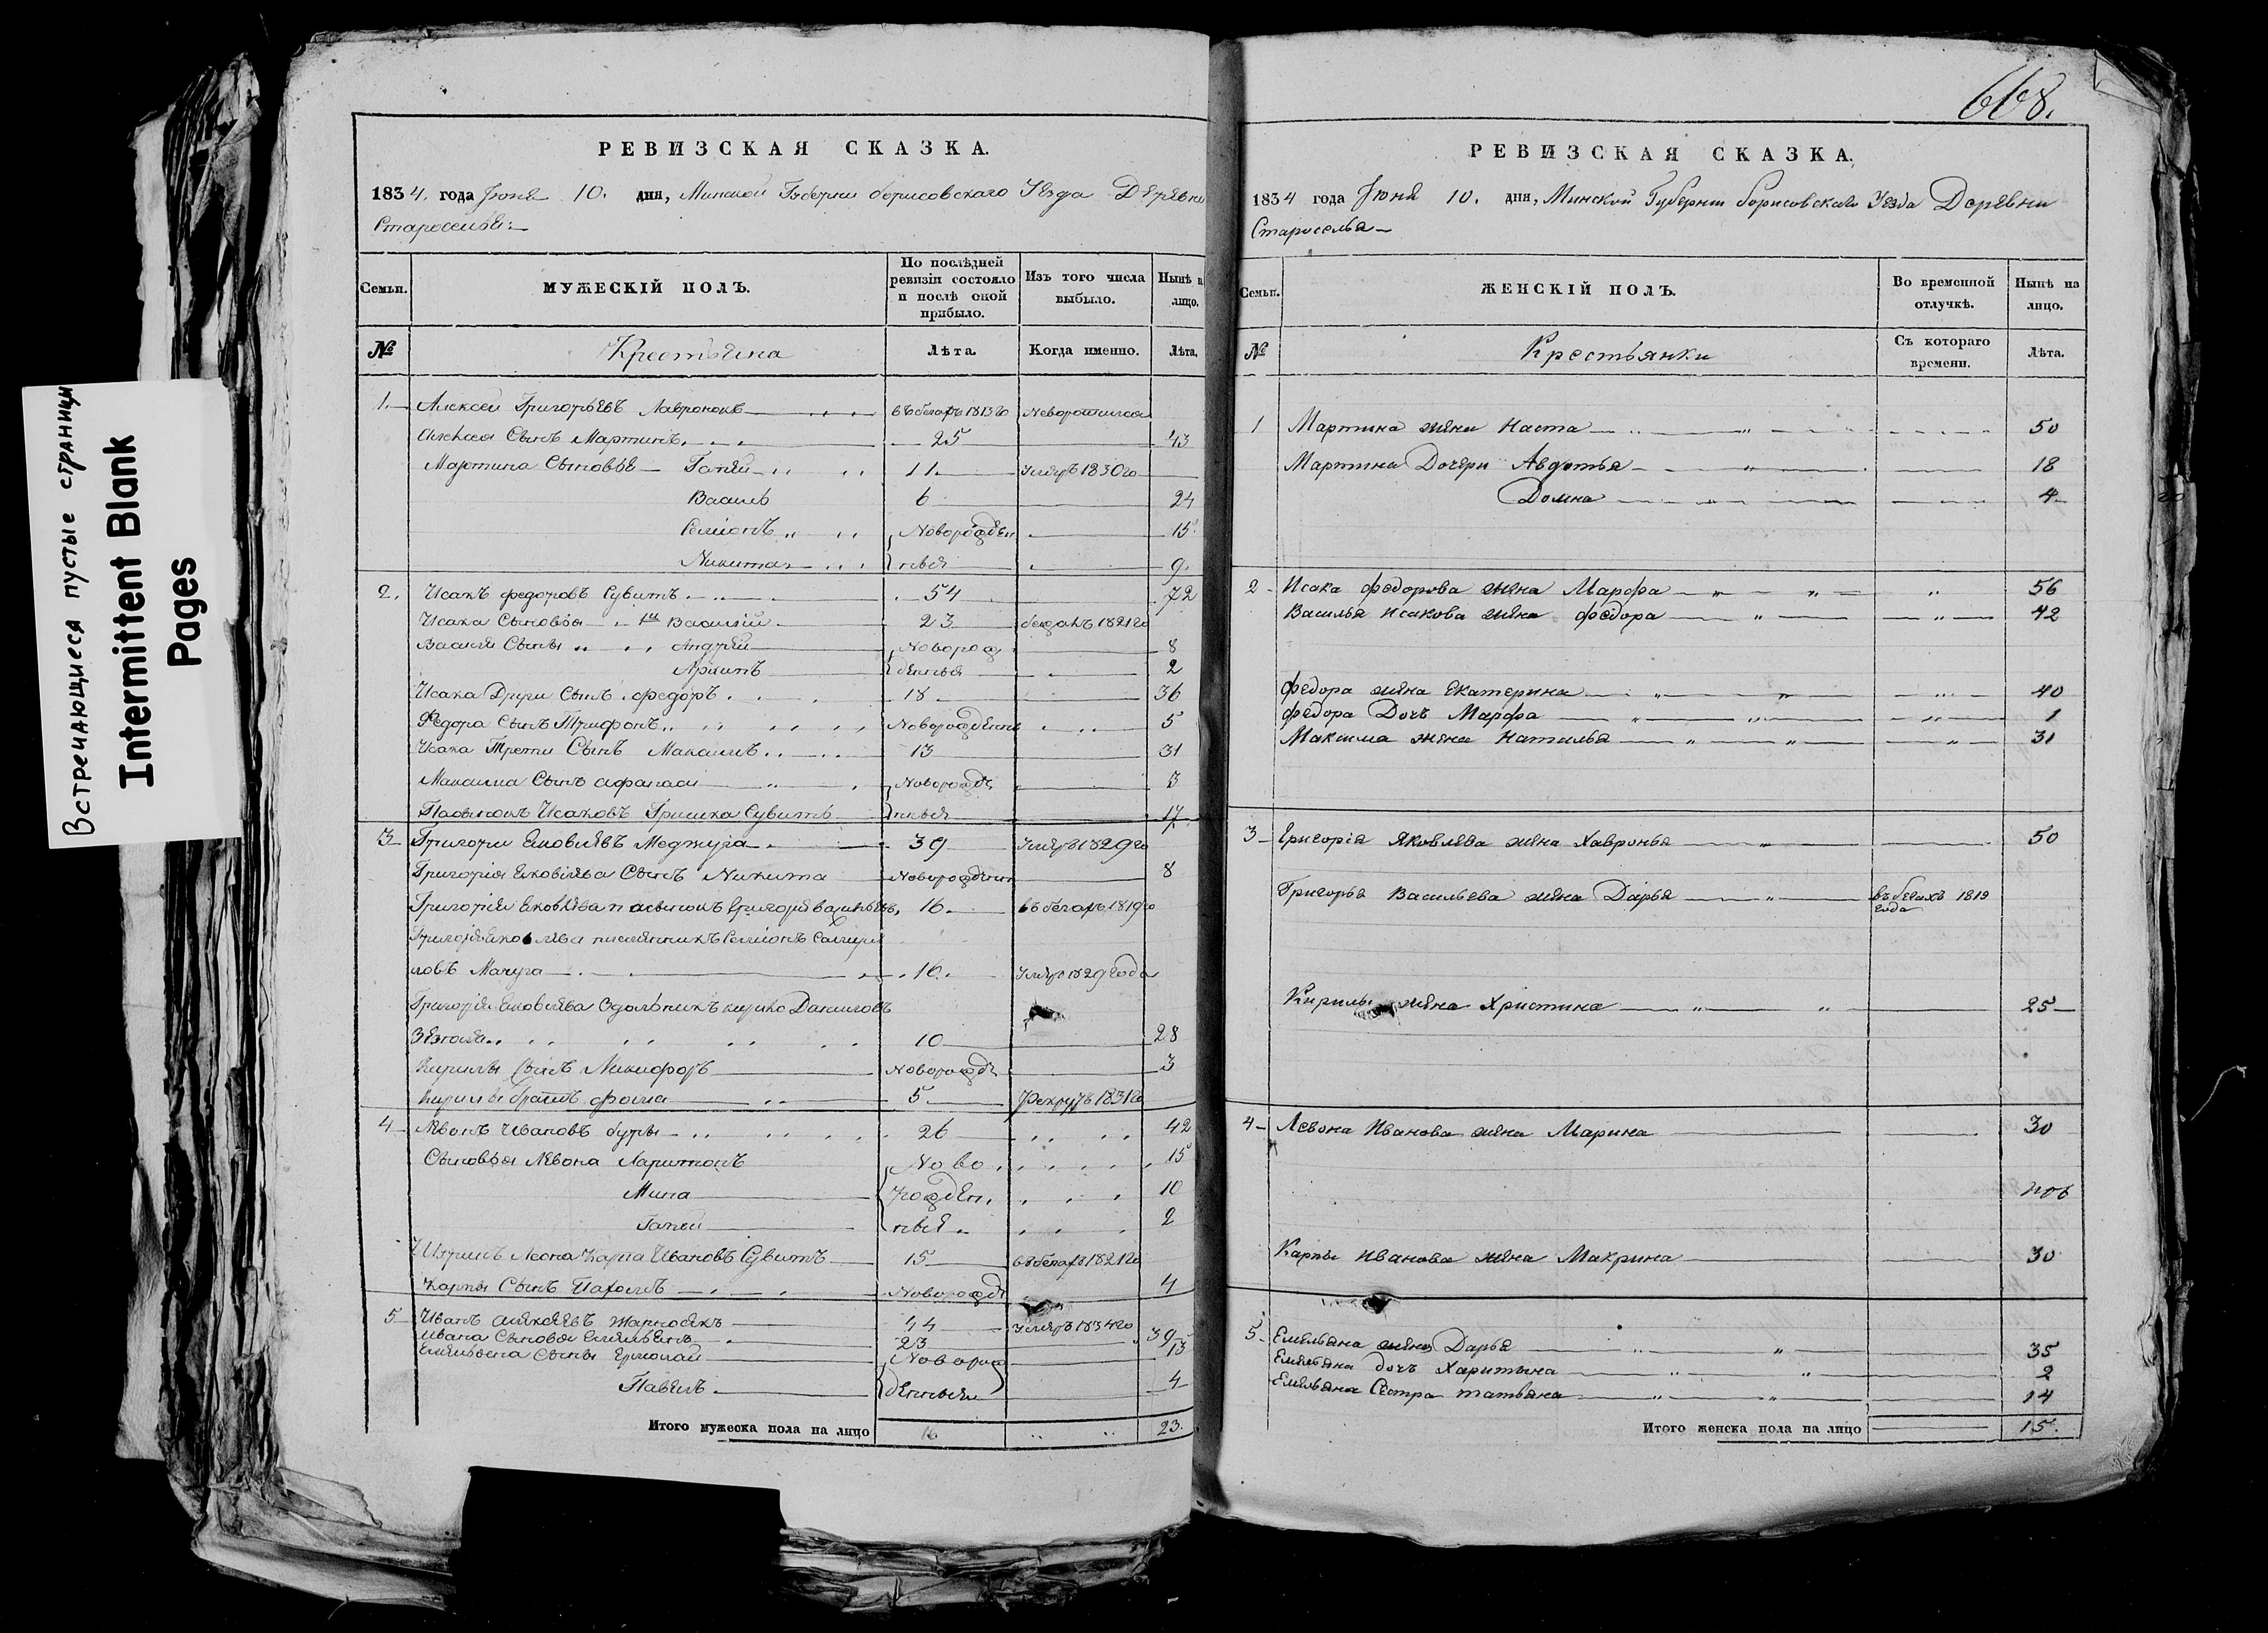 Встречающиеся пустые страницы
Intermittent Blank
Pages
РЕВИЗСКАЯ СКАЗКА.
1834. года Іюня 10. дня, Минской Губерни борисовскаго Уезда Деревни
Староселья:
Семьи.
МУЖЕСКІЙ ПОЛЪ.
По послѣдней
ревизіи состояло
и послѣ оной
прибыло.
Изъ того числа
выбыло.
Нынѣ н
лицо.
№
Крестьяна
Лѣта.
Когда именно.
Лѣта.
1. Алексей Григорьевъ Лавронокъ въ бегахъ 1813го
Алексея Сынъ Мартинъ. 25 43
Мартина Сыновья Гапей 11 Умеръ 1830го
Василь 6 24
Семіонъ Новорожден 15
Никита ныя 9.
2. Исакъ федоровъ Сувитъ. 54 72
Исака Сыновья 1й Василій 23 1821го
Василя Сыны Андрей Новорож 8
Архипъ денныя 2
Исака Други Сынъ федоръ. 18 36
Федора Сынъ Трифонъ Новорожденны 5
Исака Трети Сынъ Максимъ 13 31
Максима Сынъ афанаси Новорожде 3
Исаковъ Гришка Сувитъ нныя 17
3 Григори Яковлевъ 39 Умеръ 1829го
Григорія Яковлева Сынъ Никита Новорожденны 8
Григорія Яковлева 16. въ бегахъ 1819го
Григорія Яковлева племянникъ Семіонъ
ловъ 16. Умеръ 1829 года
Григорія Яковлева Даниловъ
10 28
Кирилы Сынъ Никифоръ Новорожде 3
Кирилы братъ фома 5 Рекрутъ 1831го
4 Левонъ Ивановъ 26 42
Сыновья Левона Харитонъ Ново 15
Мина рожден. 10
Гапей ныя 2
Карпа Ивановъ Сувитъ 15 въ бегахъ 1821го
Карпы Сынъ Пахомъ Новорожде 4
5 Иванъ алексеевъ 44 Умеръ 1834го
Ивана Сыновья Емельянъ 23 39
Емельяна Сыны Ермолай Новорож 13
Павелъ денныя 4
Итого мужеска пола на лицо 16 23.
668.
РЕВИЗСКАЯ СКАЗКА.
1834 года Іюня 10. дня, Минской Губернии борисовскаго Уезда Деревни
Староселья
Семьи.
ЖЕНСКІЙ ПОЛЪ.
Во временной
отлучкѣ.
Нынѣ на
лицо.
№
Крестьянки
Съ котораго
времени.
Лѣта.
1 Мартина жена Наста 50
Мартина Дочери Авдотья 18
Домна 4
2 Исака федорова жена Марфа 56
Василья Исакова жена федора 42
федора жена Екатерина 40
федора Дочь Марфа 1
Максима жена Наталья 31
3 Григорія Яковлева жена Хавронья 50
Григорья Васильева жена Дарья въ бегахъ 1819
года
Кирилы жена Христина 25
4 Левона Иванова жена Марина 30
Карпы Иванова жена Макрина 30
5 Емельяна жена Дарья 35
Емельяна дочъ Харитына 2
Емельяна Сестра татьяна 14
Итого женска пола на лицо 15.